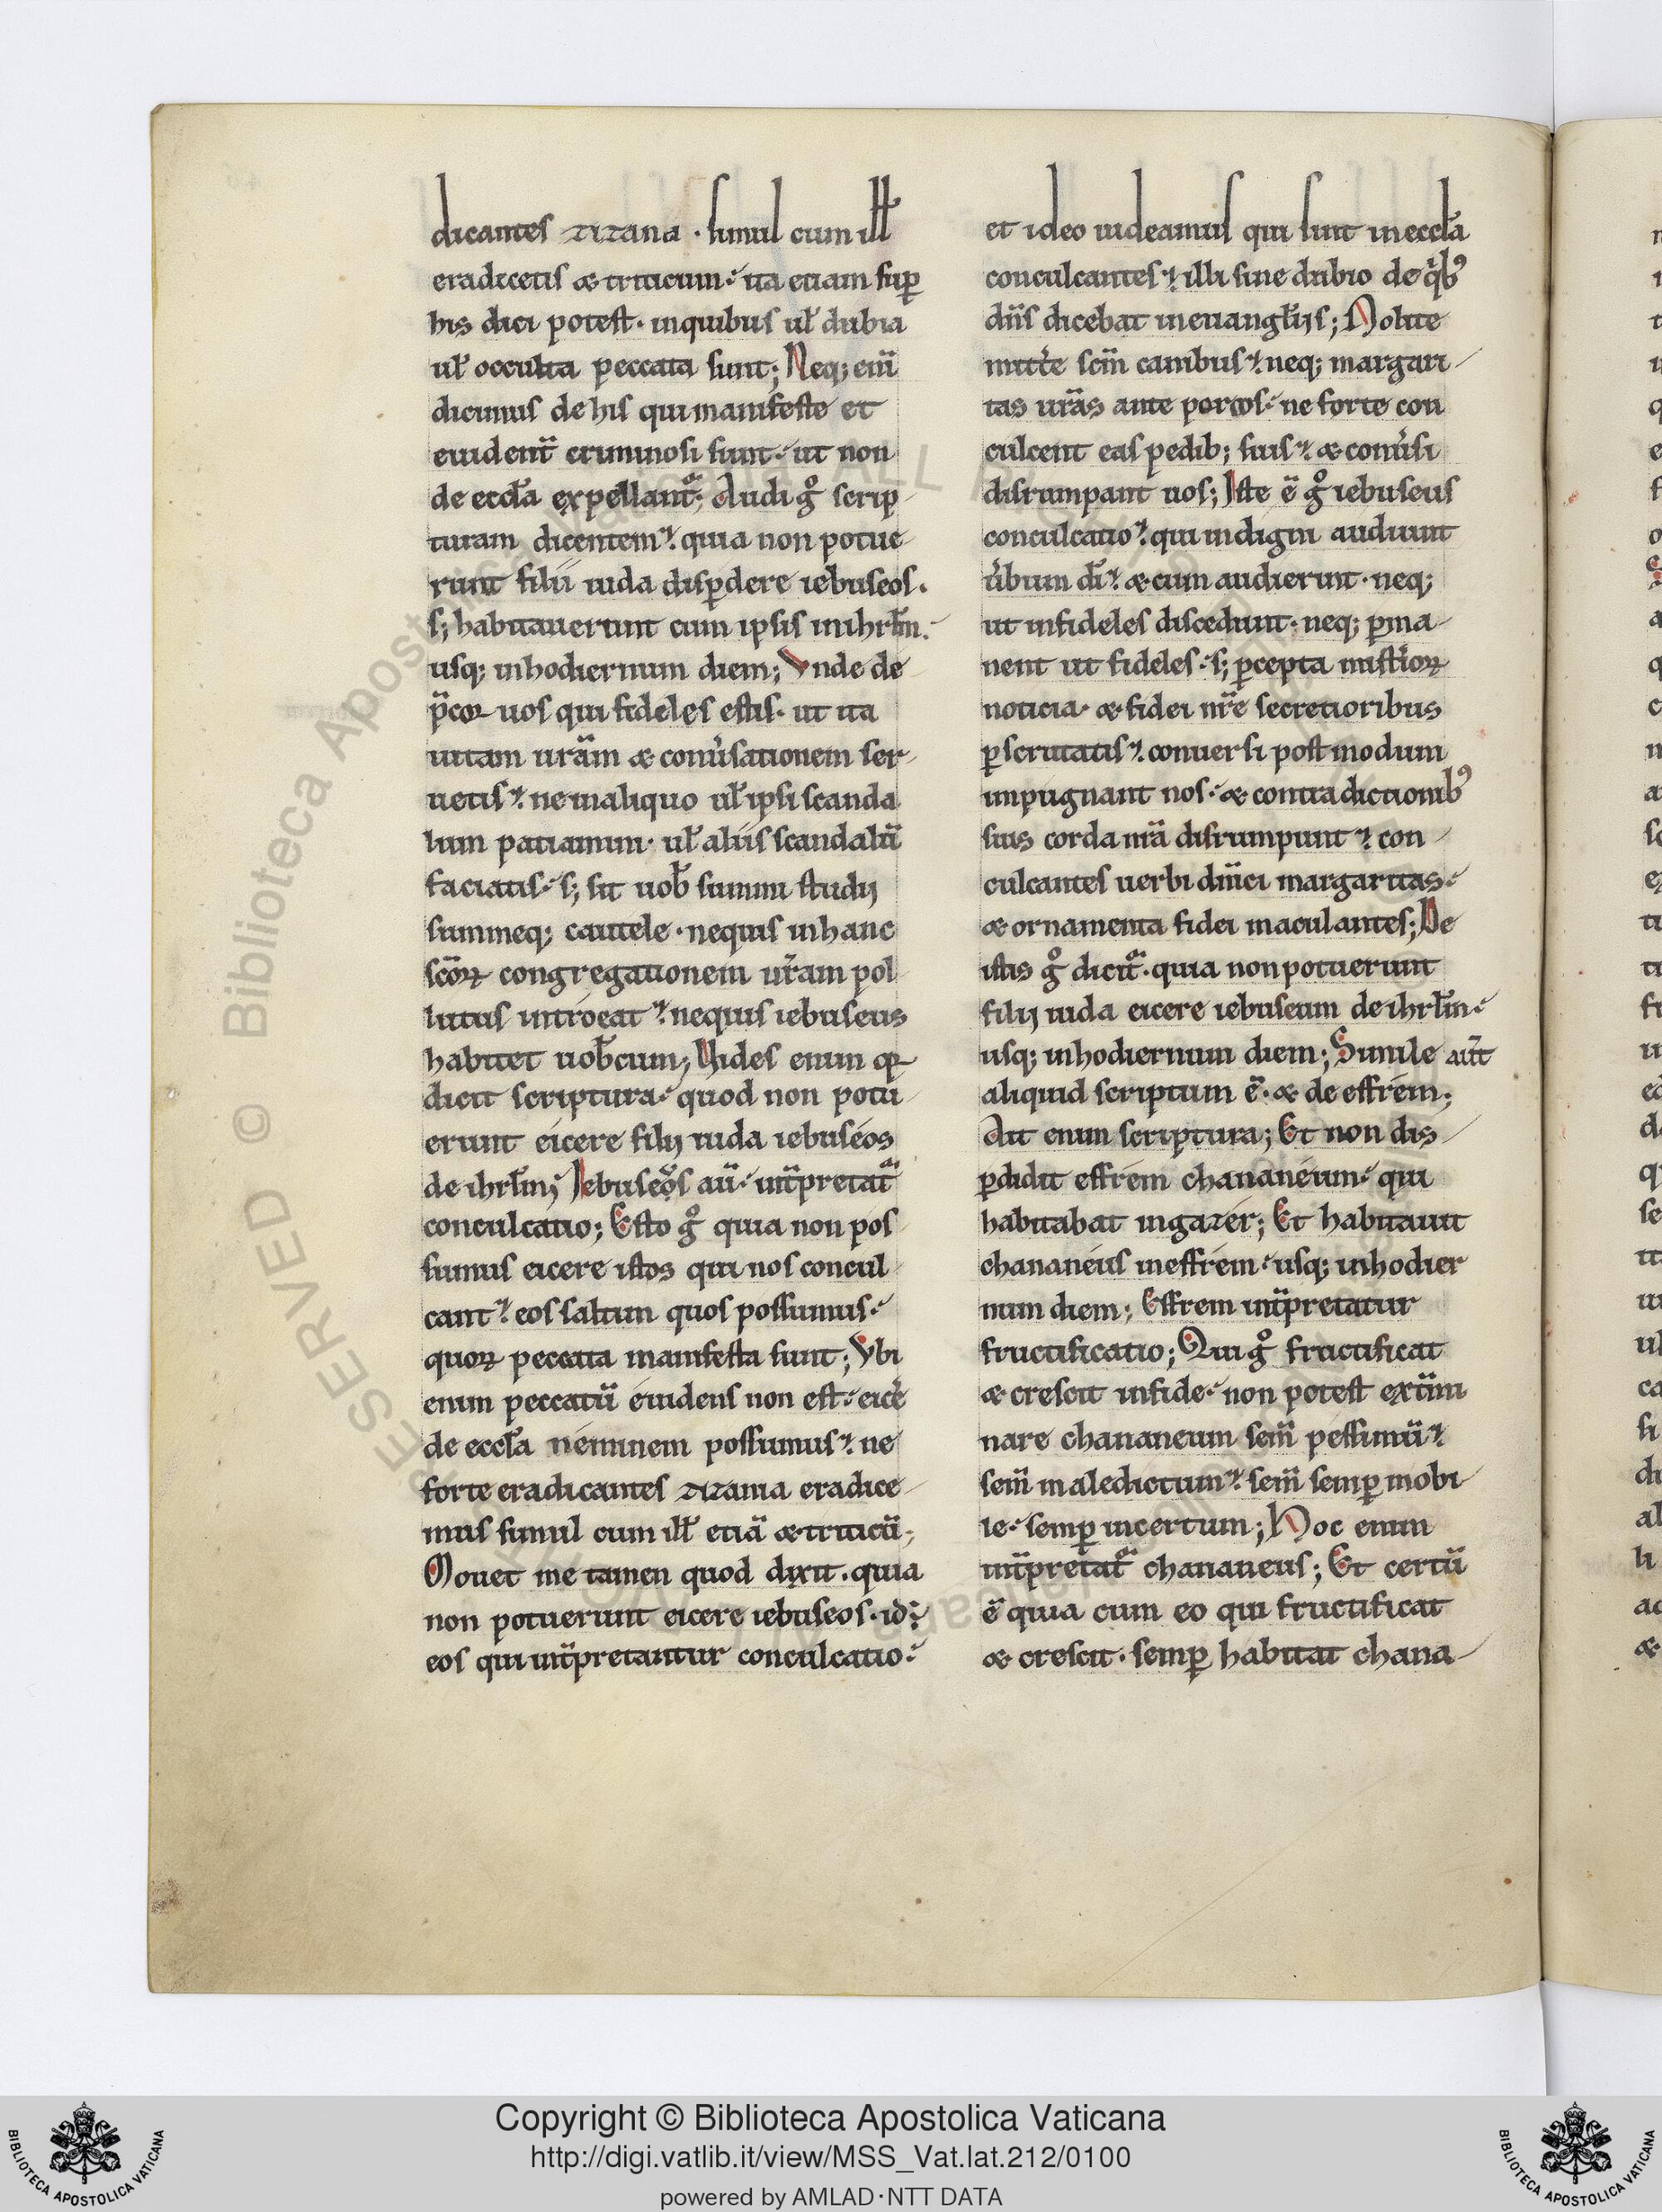 dicantes zizania · simul cum ill̅
eradicetis & triticum· ita etiam sup̱
his dici potest· inquibus ul̅ dubia
ul̅ occulta peccata sunt; Neq; eni̅
dicimus dehis qui manifeste et
euident̅ criminosi sunt· ut non
de eccl̅a expellant᷑; Audi gͦ scrip
turam dicentem· quia non potue
runt filii iuda disp̱dere iebuseos·
s; habitauerunt cum ipsis inihrl̅m·
usq; inhodiernum diem; Vnde de
p̅cor uos qui fideles estis· ut ita
uitam ur̅am & conu̅sationem ser
uetis· ne inaliquo ul̅ ipsi scanda
lum patiamini· ul̅ aliis scandalu̅
faciatis· s; sit uob̅ summi studij
summeq; cautele· nequis inhanc
sc̅oꝝ congregationem ur̅am pol
lutus introeat· nequis iebuseus
habitet uob̅cum; Vides enim qꝛ
dicit scriptura· quod non potu
erunt eicere filij iuda iebuséos
de ihrl̅m; Iebuseo̅s au̅· int̅pretat᷑
conculcatio; Esto gͦ quia non pos
sumus eicere istos qui nos concul
cant· eos saltim quos possumus·
quoꝝ peccata manifesta sunt; Vbi
enim peccatu̅ éuidens non est· eice̅
de eccl̅a néminem possumus· ne
forte eradicantes zizania eradice
mus simul cum ill̅ etia̅ & triticu̅;
Mouet me tamen quod dixit· quia
non potuerunt eicere iebuseos· id÷
eos qui int̅pretantur conculcatio·
et ideo uideamus qui sunt in eccl̅a
conculcantes· illi sine dubio de qͥbꝰ
dn̅s dicebat ineuangl̅ijs; Nolite
mitt̅e sc̅m canibus· neq; margari
tas ur̅as ante porcos· ne forte con
culcent eas pedib; suis· & conu̅si
disrumpant uos; Iste e̅ gͦ iebuseus
conculcatio· qui indigni audiunt
u̅bum di̅· & cum audierint· neq;
ut infideles discedunt· neq; p̱ma
nent ut fideles· s; p̱cepta mist̅ioꝝ
noticia· & fidei nr̅e secretioribus
p̱scrutatis· conuersi post modum
inpugnant nos· & contradictionibꝰ
suis corda nr̅a disrumpunt· con
culcantes uerbi diui̅ci margaritas·
& ornamenta fidei maculantes; De
istis gͦ dicit᷑· quia non potuerunt
filij iuda eicere iebuseum de ihrl̅m·
usq; inhodiernum diem; Simile aut̅
aliquid scriptum e̅· & de effrém;
Ait enim scriptura; Et non dis
p̱didit effrém chananéum· qui
habitabat ingazér; Et habitauit
chananéus ineffrém· usq; inhodier
num diem; Effrem int̅pretatur
fructificatio; Qui gͦ fructificat
& crescit infide· non potest ext̅mi
nare chananeum sem̅ pessimu̅·
sem̅ maledictum· sem̅ semp̱ mobi
le· semp̱ incertum; Hoc enim
int̅pretat᷑ chananeus; Et certu̅
e̅ quia cum eo qui fructificat
& crescit· semp̱ habitat chana
RESERVED © Biblioteca Apostolica Vaticana
Copyright © Biblioteca Apostolica Vaticana
http://digi.vatlib.it/view/MSS_Vat.lat.212/0100
powered by AMLAD·NTT DATA
BIBLIOTECA APOSTOLICA VATICANA
BIBLIOTECA APOSTOLICA VATICANA